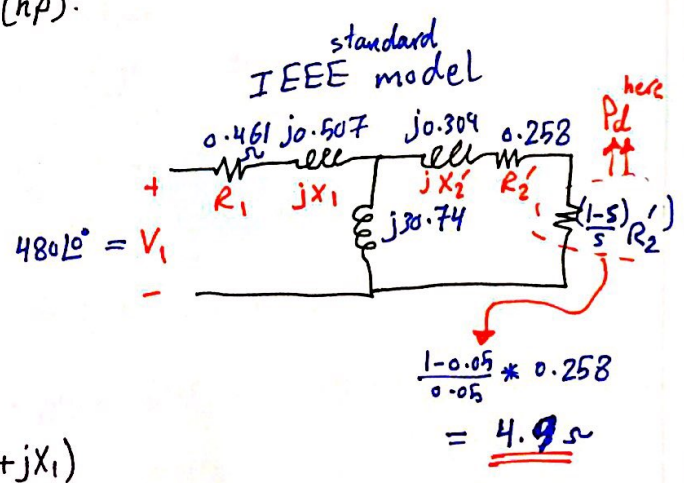 (hp).
standard
IEEE model
here
Pd
0.461 Ω j0.507 j0.309 0.258
+ R₁ jX₁ jX₂' R₂'
j30.74
(1-S)/S R₂')
480∠0° = V₁
-
1-0.05/0.05 * 0.258
= 4.9 Ω
+jX₁)